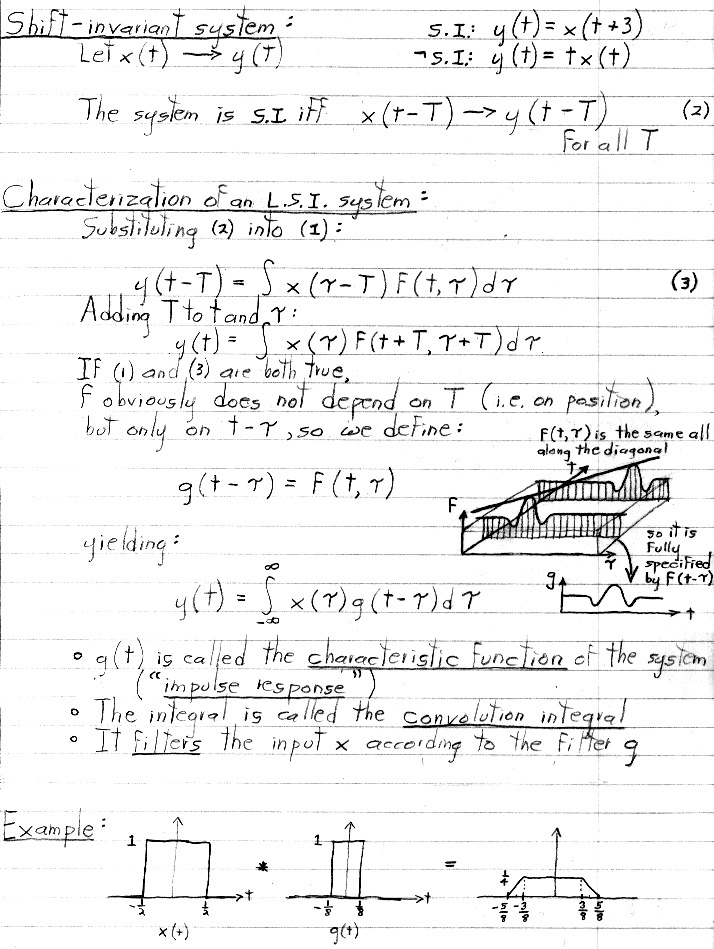 Shift-invariant system:
S.I.: y(t) = x(t+3)
Let x(t) → y(t)
¬S.I.: y(t) = t x(t)
The system is S.I iff x(t-T) → y(t-T) (2)
for all T
Characterization of an L.S.I. system:
Substituting (2) into (1):
y(t-T) = ∫ x(τ-T) F(t,τ)dτ (3)
Adding T to t and τ:
y(t) = ∫ x(τ) F(t+T, τ+T) dτ
If (1) and (3) are both true,
F obviously does not depend on T (i.e. on position),
but only on t-τ, so we define:
F(t,τ) is the same all
along the diagonal
g(t-τ) = F(t,τ)
t
F
τ
so it is
fully
specified
by F(t-τ)
g
t
yielding:
y(t) = ∫_{-∞}^{∞} x(τ) g(t-τ) dτ
• g(t) is called the characteristic function of the system
("impulse response")
• The integral is called the convolution integral
• It filters the input x according to the filter g
Example:
1 * 1 = 1/4
-1/2 1/2 t -1/8 1/8 t -5/8 -3/8 3/8 5/8
x(t) g(t)